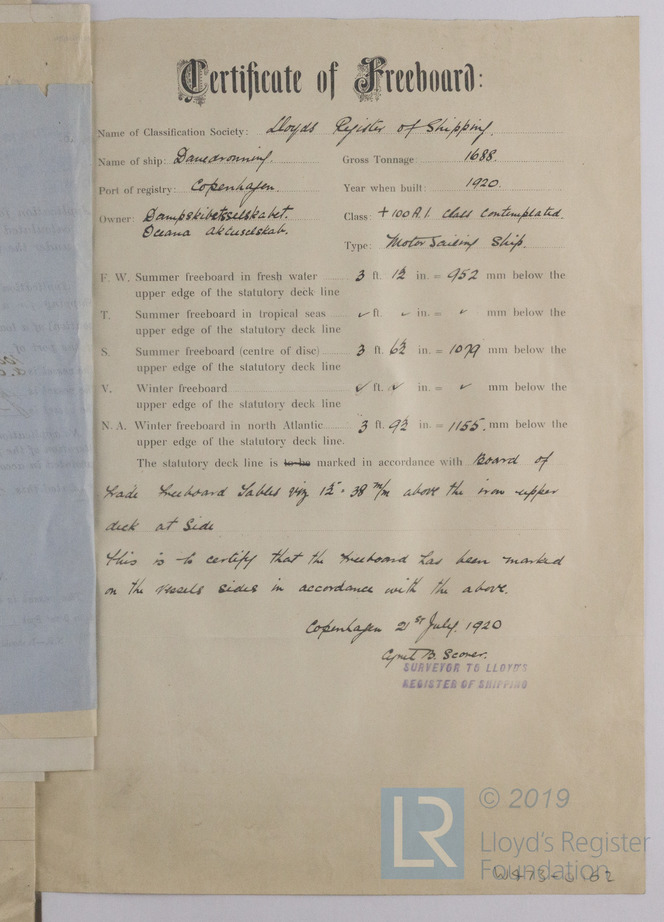 Certificate of Freeboard:
Name of Classification Society: Lloyds Register of Shipping.
Name of ship: Danedronning. Gross Tonnage: 1688.
Port of registry: Copenhagen. Year when built: 1920.
Owner: Dampskibsselskabet. Class: +100 A.1. class contemplated.
Oceana
Type: Motor Sailing Ship.
F. W. Summer freeboard in fresh water 3 ft. 1½ in. = 952 mm below the
upper edge of the statutory deck line
T. Summer freeboard in tropical seas ✓ ft. ✓ in. = ✓ mm below the
upper edge of the statutory deck line
S. Summer freeboard (centre of disc) 3 ft. 6½ in. = 1079 mm below the
upper edge of the statutory deck line
V. Winter freeboard ✓ ft. ✓ in. = ✓ mm below the
upper edge of the statutory deck line
N. A. Winter freeboard in north Atlantic 3 ft. 9½ in. = 1155. mm below the
upper edge of the statutory deck line.
The statutory deck line is to be marked in accordance with Board of
trade Freeboard Tables viz 1½" = 38 m/m above the iron upper
deck at side
This is to certify that the freeboard has been marked
on the vessels sides in accordance with the above.
Copenhagen 21st July. 1920
SURVEYOR TO LLOYD'S
REGISTER OF SHIPPING
LR © 2019
Lloyd's Register
Foundation